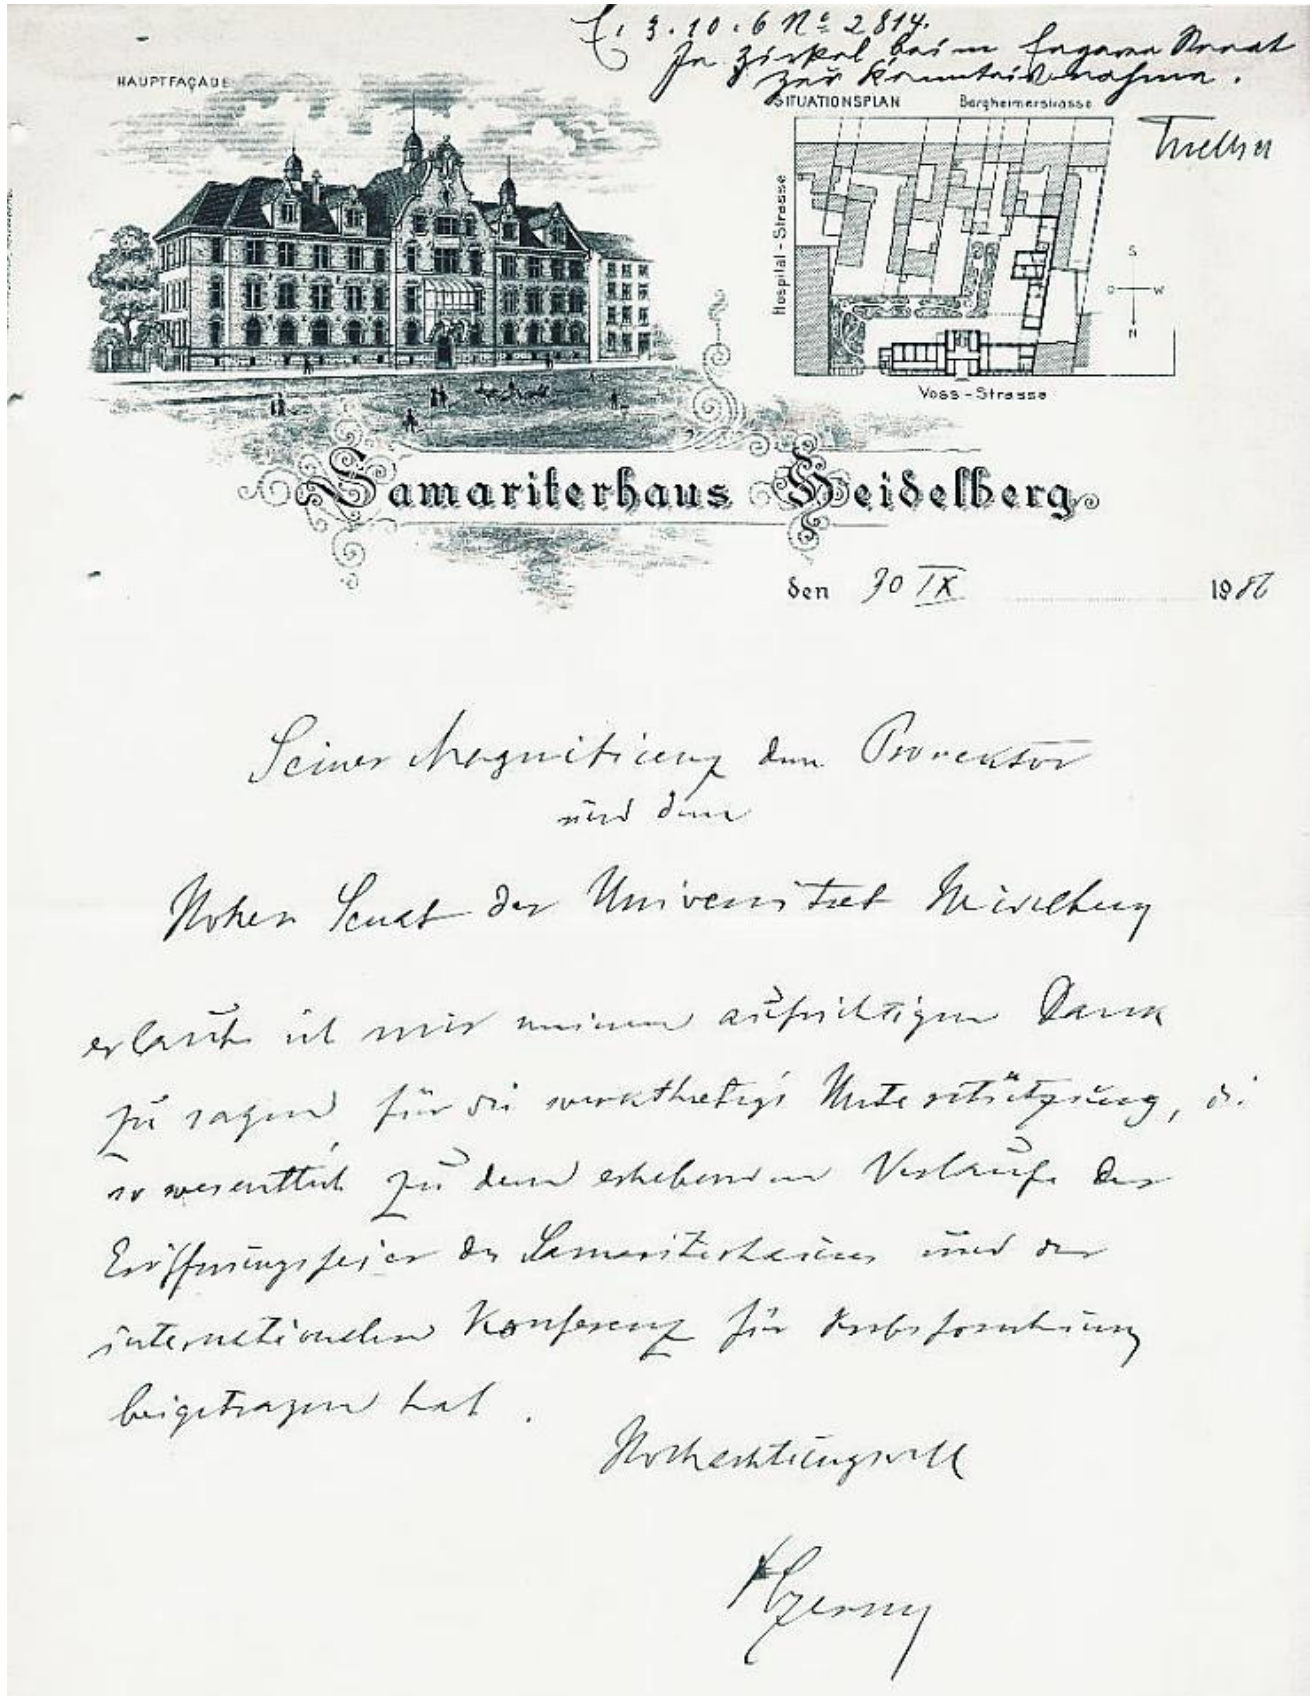 E. 3.10.6 No 2814.
In Zirkel beim Engeren Senat
zur Kenntnisnahme.
HAUPTFAÇADE
SITUATIONSPLAN Bergheimerstrasse
Hospital-Strasse
S
O W
N
Voss-Strasse
Samariterhaus Heidelberg
den 30 IX 1906
Seiner Magnificenz dem Prorektor
und dem
Hohen Senat der Universitaet Heidelberg
erlaube ich mir meinen aufrichtigen Dank
zu sagen für die werkthaetige Unterstützung, die
so wesentlich zu dem erhebenden Verlaufe der
Eröffnungsfeier des Samariterhauses und der
internationalen Konferenz für Krebsforschung
beigetragen hat.
Hochachtungsvoll
Czerny